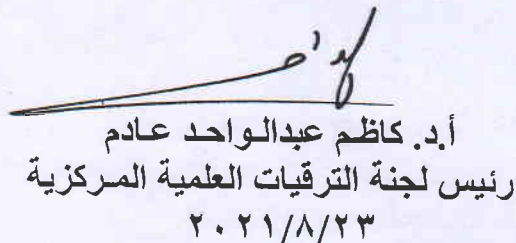 أ.د. كاظم عبدالواحد عادم
رئيس لجنة الترقيات العلمية المركزية
٢٠٢١/٨/٢٣